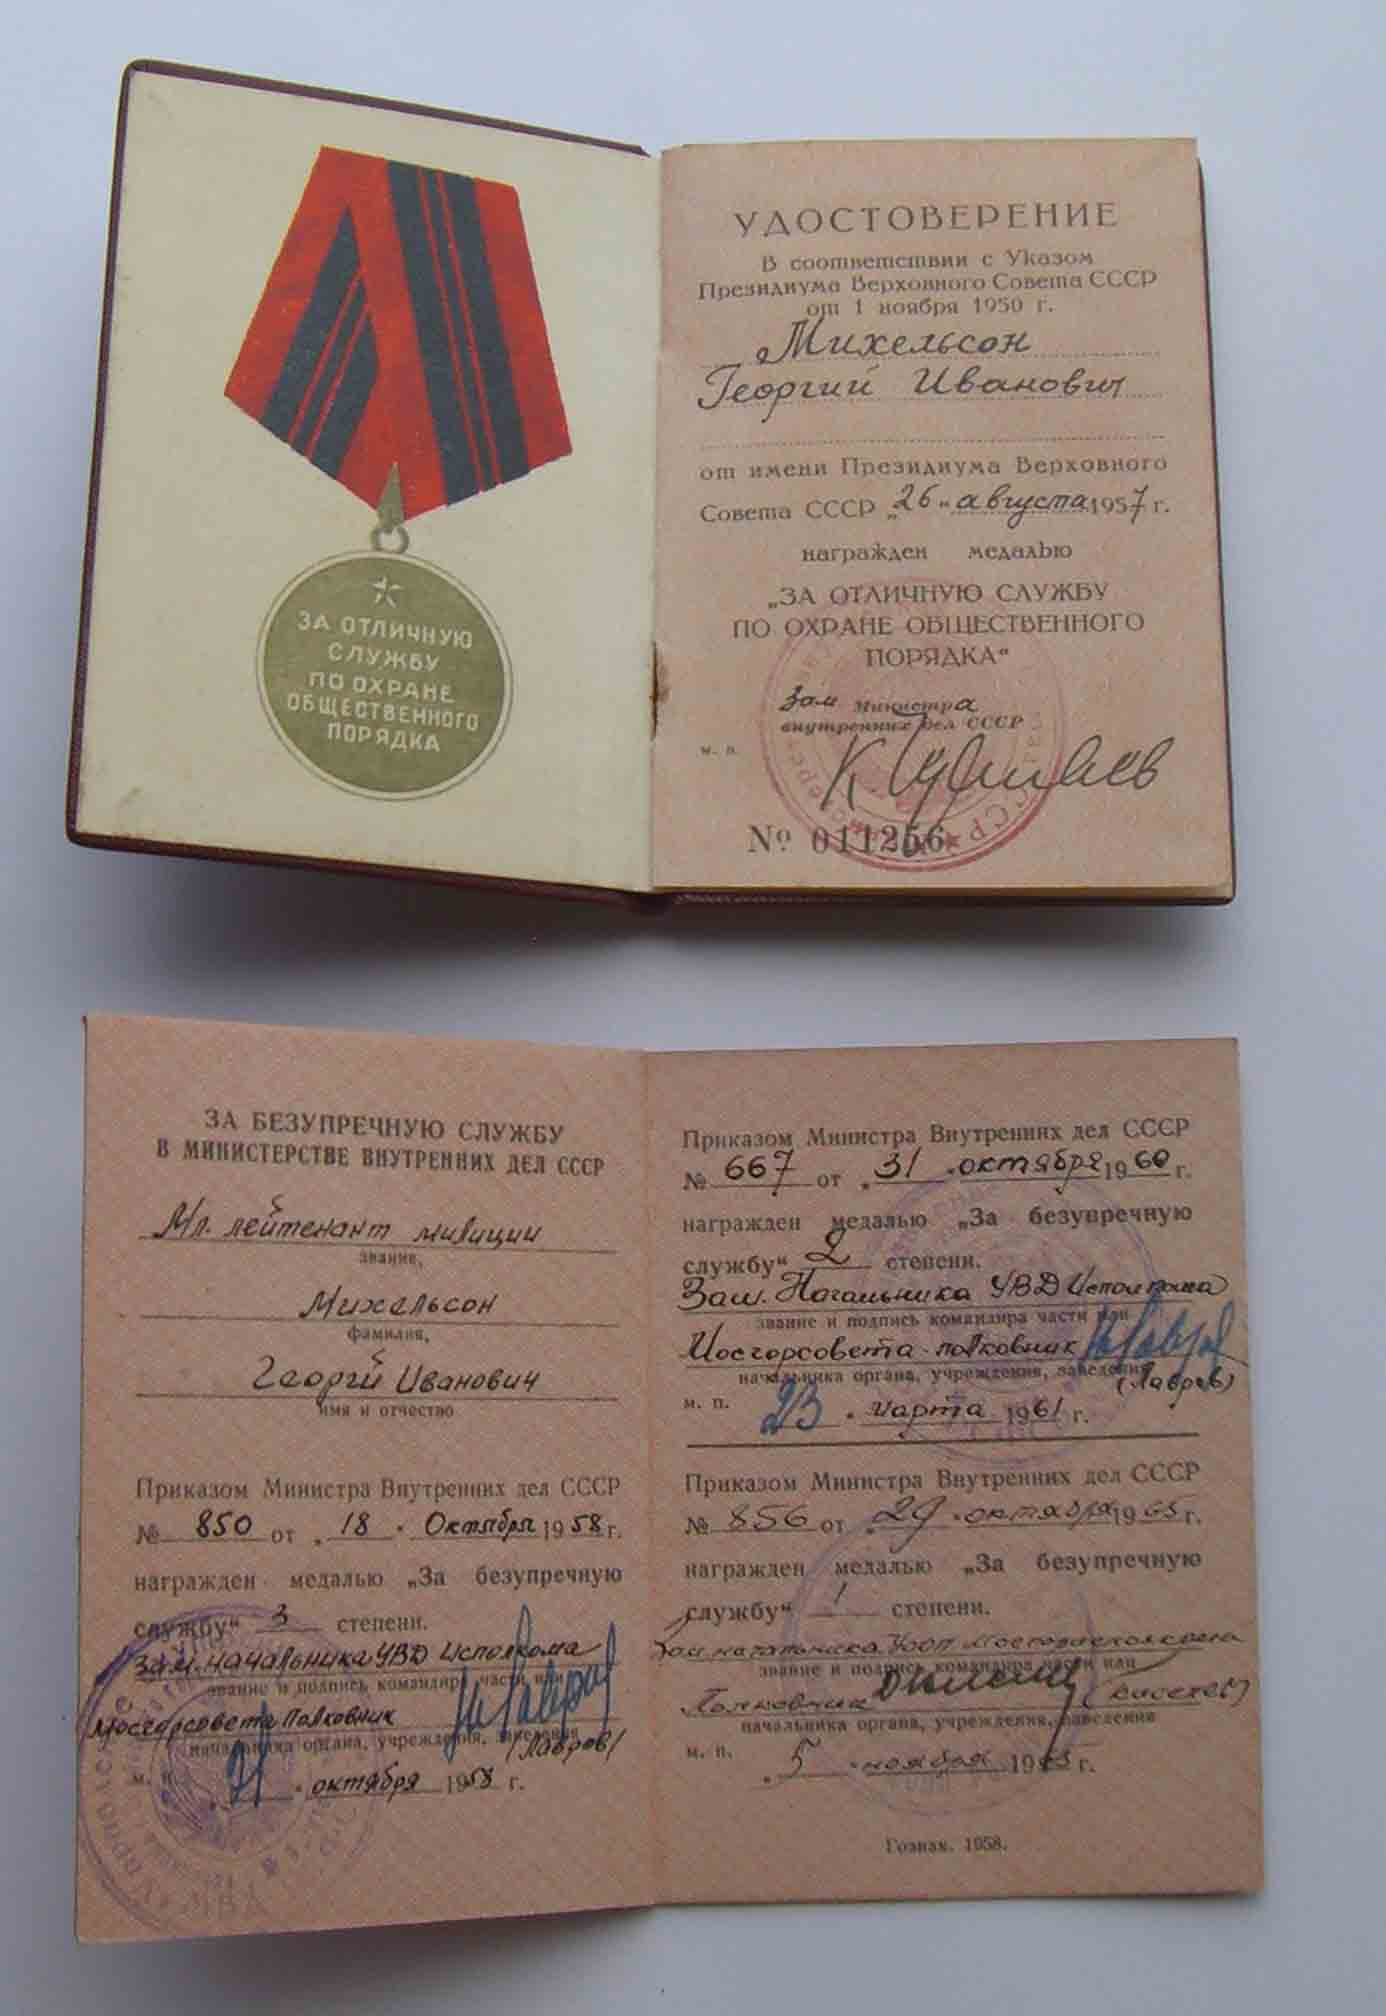 ЗА ОТЛИЧНУЮ
СЛУЖБУ
ПО ОХРАНЕ
ОБЩЕСТВЕННОГО
ПОРЯДКА
УДОСТОВЕРЕНИЕ
В соответствии с Указом
Президиума Верховного Совета СССР
от 1 ноября 1950 г.
Михельсон
Георгий Иванович
от имени Президиума Верховного
Совета СССР „26" августа 1957 г.
награжден медалью
„ЗА ОТЛИЧНУЮ СЛУЖБУ
ПО ОХРАНЕ ОБЩЕСТВЕННОГО
ПОРЯДКА"
Зам Министра
внутренних дел СССР
м. п.
№ 011256
ЗА БЕЗУПРЕЧНУЮ СЛУЖБУ
В МИНИСТЕРСТВЕ ВНУТРЕННИХ ДЕЛ СССР
Мл. лейтенант милиции
звание,
Михельсон
фамилия,
Георгй Иванович
имя и отчество
Приказом Министра Внутренних дел СССР
№ 850 от „18" Октября 1958 г.
награжден медалью „За безупречную
службу" 3 степени.
Зам. начальника УВД Исполкома
звание и подпись командира части или
Мосгорсовета Полковник
начальника органа, учреждения, заведения
(Лавров)
м. п. „21" октября 1958 г.
Приказом Министра Внутренних дел СССР
№ 667 от „31" октября 1960 г.
награжден медалью „За безупречную
службу" 2 степени.
Зам. Начальника УВД Исполкома
звание и подпись командира части или
Мосгорсовета - полковник
начальника органа, учреждения, заведения
(Лавров)
м. п. 23 " марта 1961 г.
Приказом Министра Внутренних дел СССР
№ 856 от „29" октября 1965 г.
награжден медалью „За безупречную
службу" 1 степени.
Зам начальника УООП
звание и подпись командира части или
Полковник
начальника органа, учреждения, заведения
м. п. „5" ноября 19 г.
Гознак. 1958.